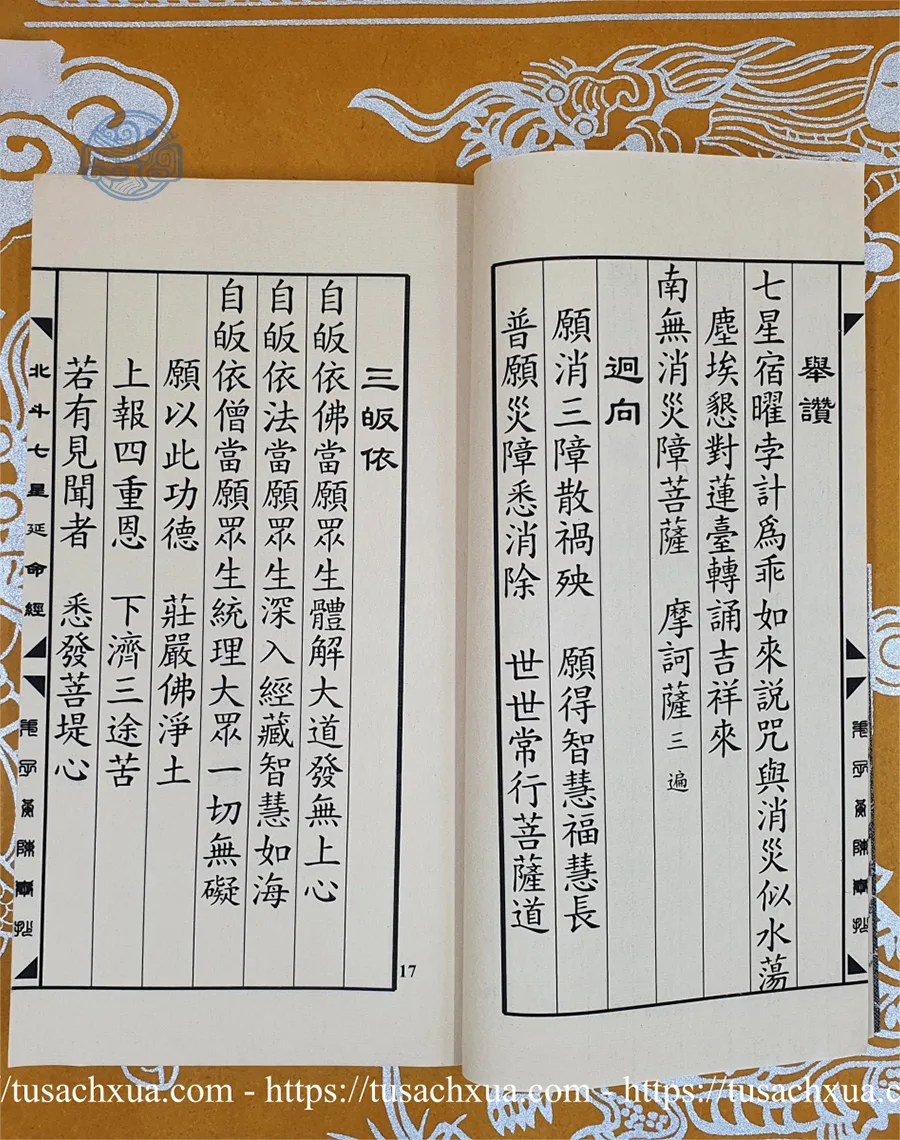 舉讚
七星宿曜孛計為乖 如來說咒與消災似水蕩
塵埃懇對蓮臺轉誦吉祥來
南無消災障菩薩 摩訶薩 三遍
迴向
願消三障散禍殃 願得智慧福慧長
普願災障悉消除 世世常行菩薩道
三皈依
自皈依佛當願眾生體解大道發無上心
自皈依法當願眾生深入經藏智慧如海
自皈依僧當願眾生統理大眾一切無礙
願以此功德 莊嚴佛淨土
上報四重恩 下濟三途苦
若有見聞者 悉發菩堤心
北斗七星延命經
17
//tusachxua.com - https://tusachxua.com - https://tusachxua.c